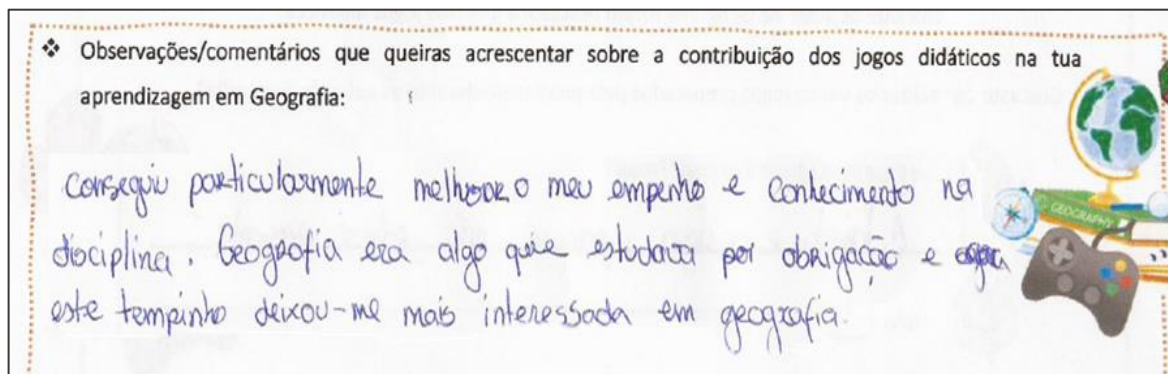 ❖ Observações/comentários que queiras acrescentar sobre a contribuição dos jogos didáticos na tua
aprendizagem em Geografia:
conseguiu particularmente melhorar o meu empenho e conhecimento na
disciplina. Geografia era algo que estudava por obrigação e
este tempinho deixou-me mais interessada em geografia.
GEOGRAPHY